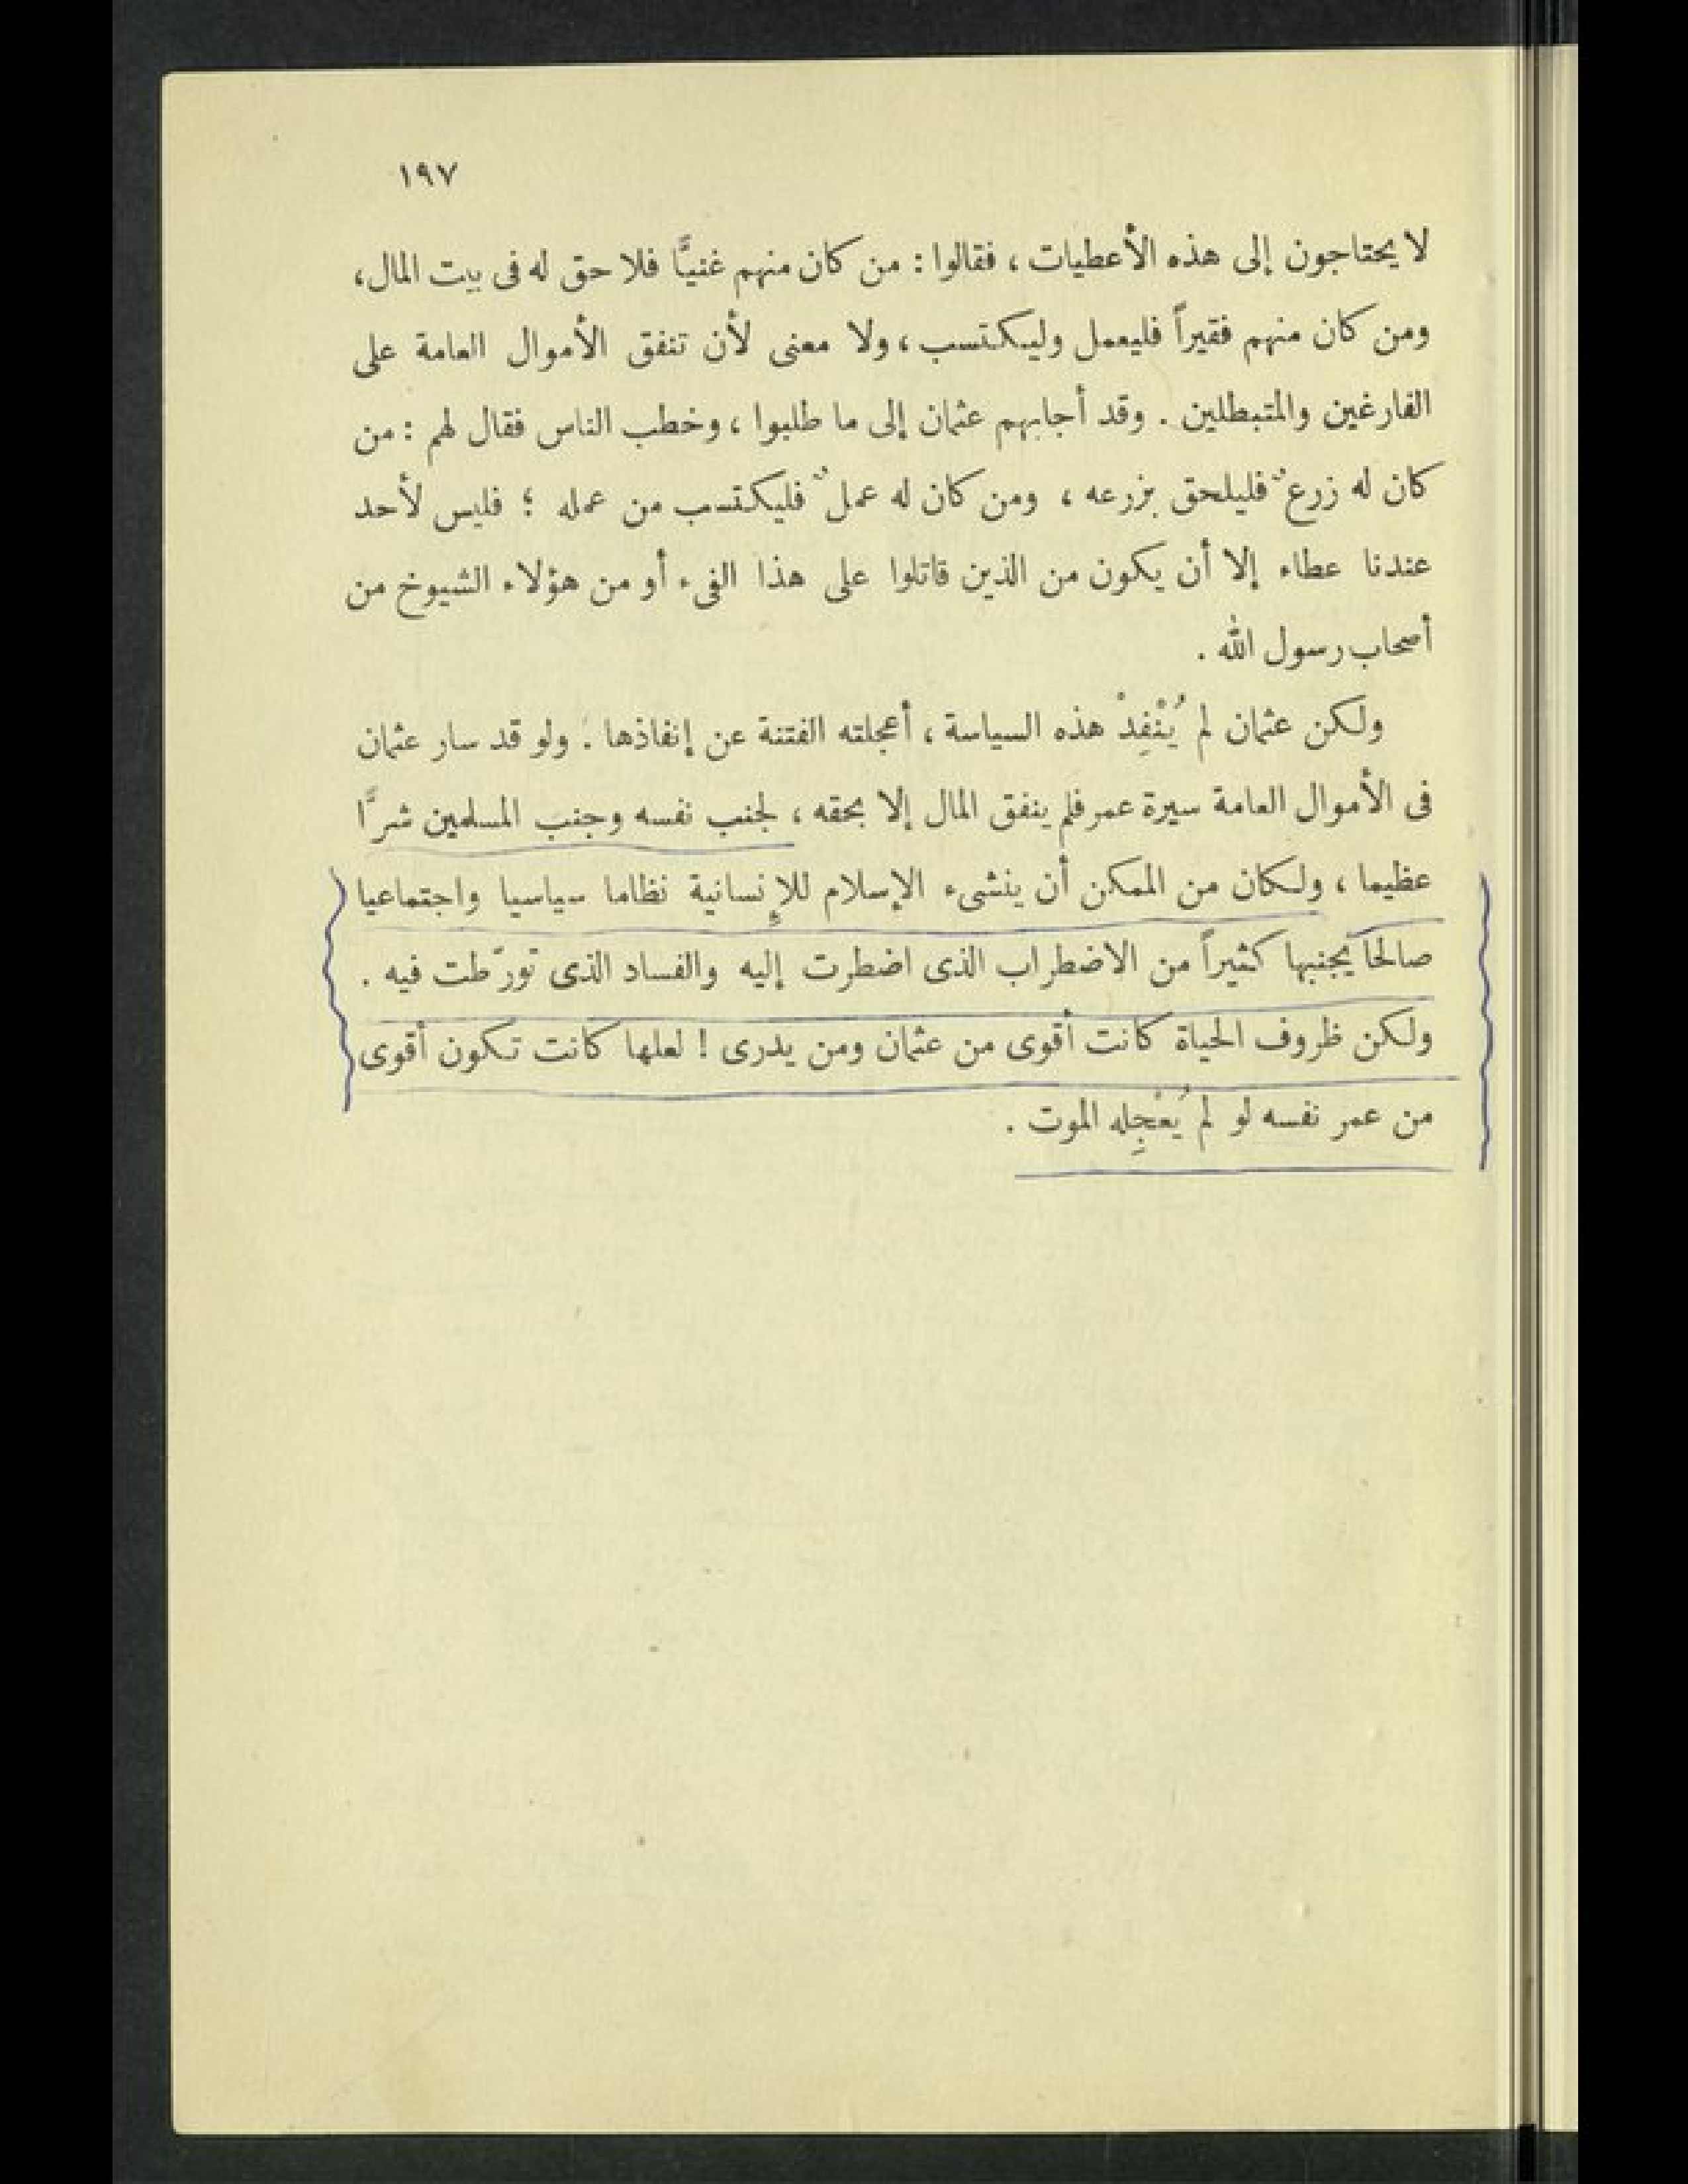 ١٩٧
لا يحتاجون إلى هذه الأعطيات ، فقالوا : من كان منهم غنيًّا فلا حق له فى بيت المال،
ومن كان منهم فقيراً فليعمل وليكتسب ، ولا معنى لأن تنفق الأموال العامة على
الفارغين والمتبطلين . وقد أجابهم عثمان إلى ما طلبوا ، وخطب الناس فقال لهم : من
كان له زرعٌ فليلحق بزرعه ، ومن كان له عملٌ فليكتسب من عمله ؛ فليس لأحد
عندنا عطاء إلا أن يكون من الذين قاتلوا على هذا الفىء أو من هؤلاء الشيوخ من
أصحاب رسول الله .
ولكن عثمان لم يُنْفِذْ هذه السياسة ، أعجلته الفتنة عن إنفاذها . ولو قد سار عثمان
فى الأموال العامة سيرة عمر فلم ينفق المال إلا بحقه ، لجنب نفسه وجنب المسلمين شرًّا
عظيما ، ولكان من الممكن أن ينشىء الإسلام للإنسانية نظاما سياسيا واجتماعيا
صالحا يجنبها كثيراً من الاضطراب الذى اضطرت إليه والفساد الذى تورّطت فيه .
ولكن ظروف الحياة كانت أقوى من عثمان ومن يدرى ! لعلها كانت تكون أقوى
من عمر نفسه لو لم يُعْجِله الموت .